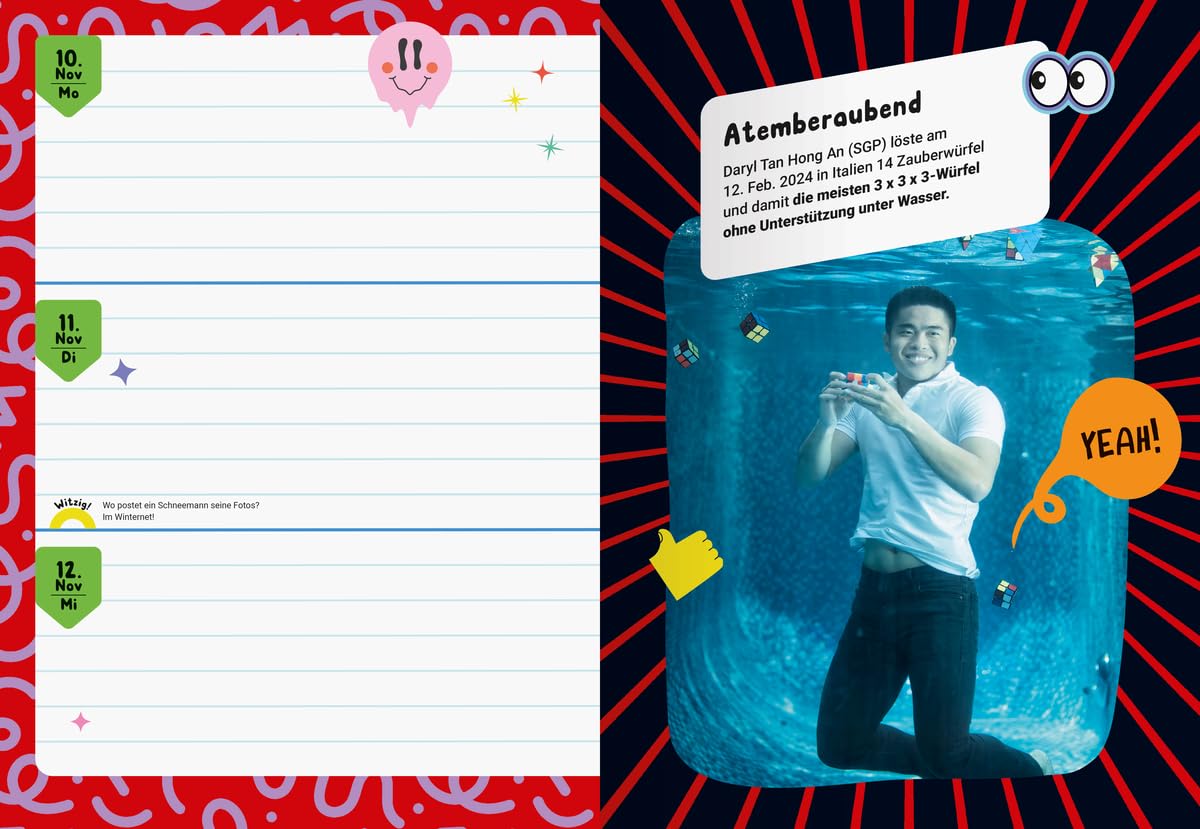 10.
Nov
Mo
11.
Nov
Di
Witzig!
Wo postet ein Schneemann seine Fotos?
Im Winternet!
12.
Nov
Mi
Atemberaubend
Daryl Tan Hong An (SGP) löste am
12. Feb. 2024 in Italien 14 Zauberwürfel
und damit die meisten 3 x 3 x 3-Würfel
ohne Unterstützung unter Wasser.
YEAH!